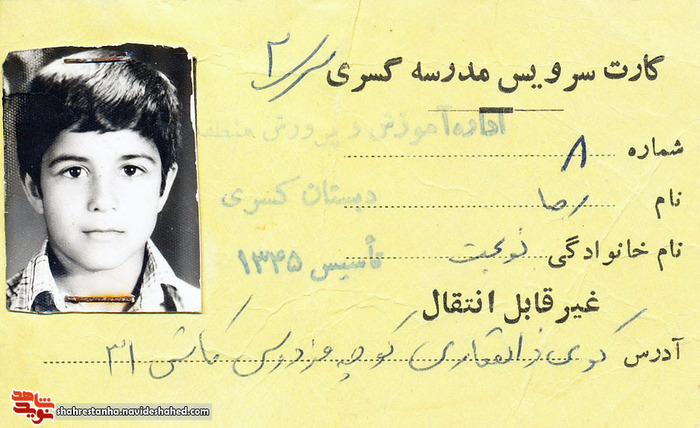 کارت سرویس مدرسه کسری
سری ۲
اداره آموزش و پرورش منطقه
شماره ۸
دبستان کسری
نام رضا
تأسیس ۱۳۴۵
نام خانوادگی نوبخت
غیر قابل انتقال
آدرس کوی ذوالفقاری کوچه فردوسی کاشی ۳۱
نوید شاهد
shahrestanha.navideshahed.com